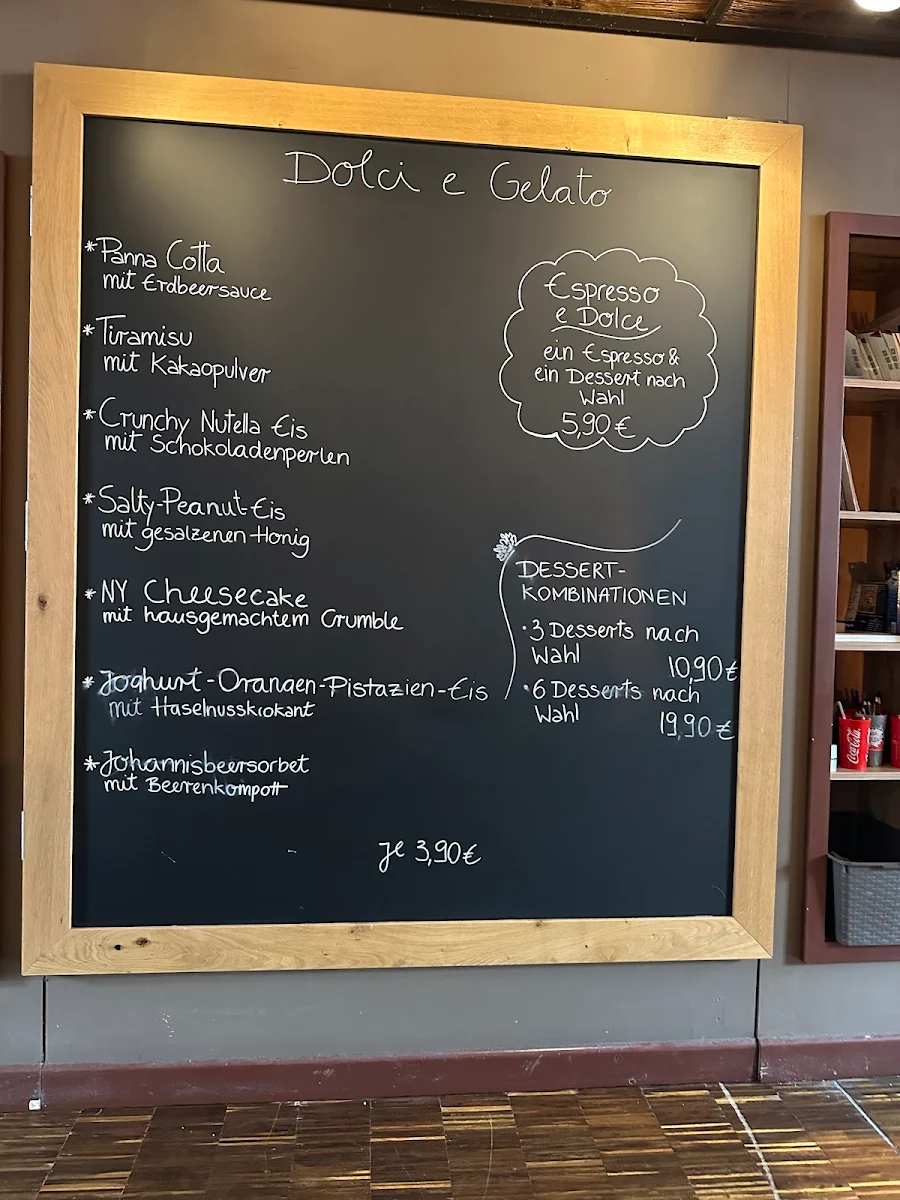 Dolci e Gelato
*Panna Cotta
mit Erdbeersauce
*Tiramisu
mit Kakaopulver
*Crunchy Nutella Eis
mit Schokoladenperlen
*Salty-Peanut-Eis
mit gesalzenen Honig
*NY Cheesecake
mit hausgemachtem Crumble
*Joghurt-Orangen-Pistazien-Eis
mit Haselnusskrokant
*Johannisbeersorbet
mit Beerenkompott
je 3,90€
Espresso
e Dolce
ein Espresso &
ein Dessert nach
Wahl
5,90€
DESSERT-
KOMBINATIONEN
·3 Desserts nach
Wahl
10,90€
·6 Desserts nach
Wahl
19,90€
Coca-Cola